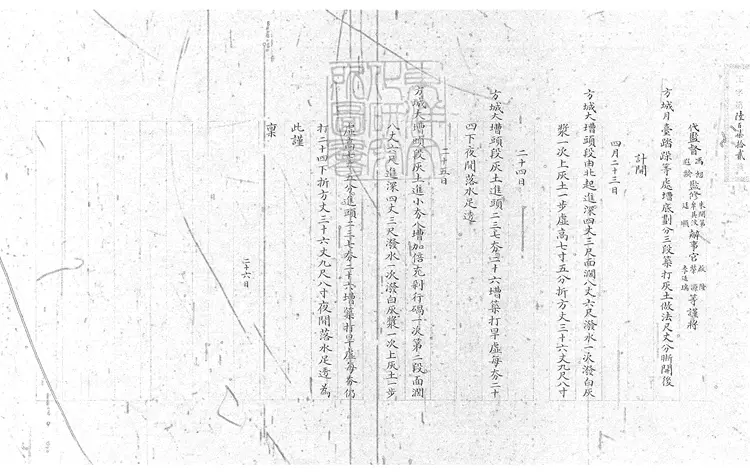 陸百拾貳
代監督馮 監修 辦事官 等謹將
方城月臺踏跺等處壇底劃分三段築打灰土做法尺丈分晰開後
計開
四月二十三日
方城大壇頭段由北起進深四丈三尺面濶八丈六尺潑水一次潑白灰
漿一次上灰土一步虛高七寸五分折方丈三十六丈九尺八寸
二十四日
方城大壇頭段灰土進頭二三七夯二十六壇築打旱虛每夯二十
四下夜間落水足透
二十五日
方城大壇頭段灰土進小夯八壇加信 剁行碢一次第二段面濶
八丈六尺進深四丈三尺潑水一次潑白灰漿一次上灰土一步
虛高七寸五分進頭二三七夯二十六壇築打旱虛每夯仍
打二十四下折方丈三十六丈九尺八寸夜間落水足透為
此謹
稟
二十六日